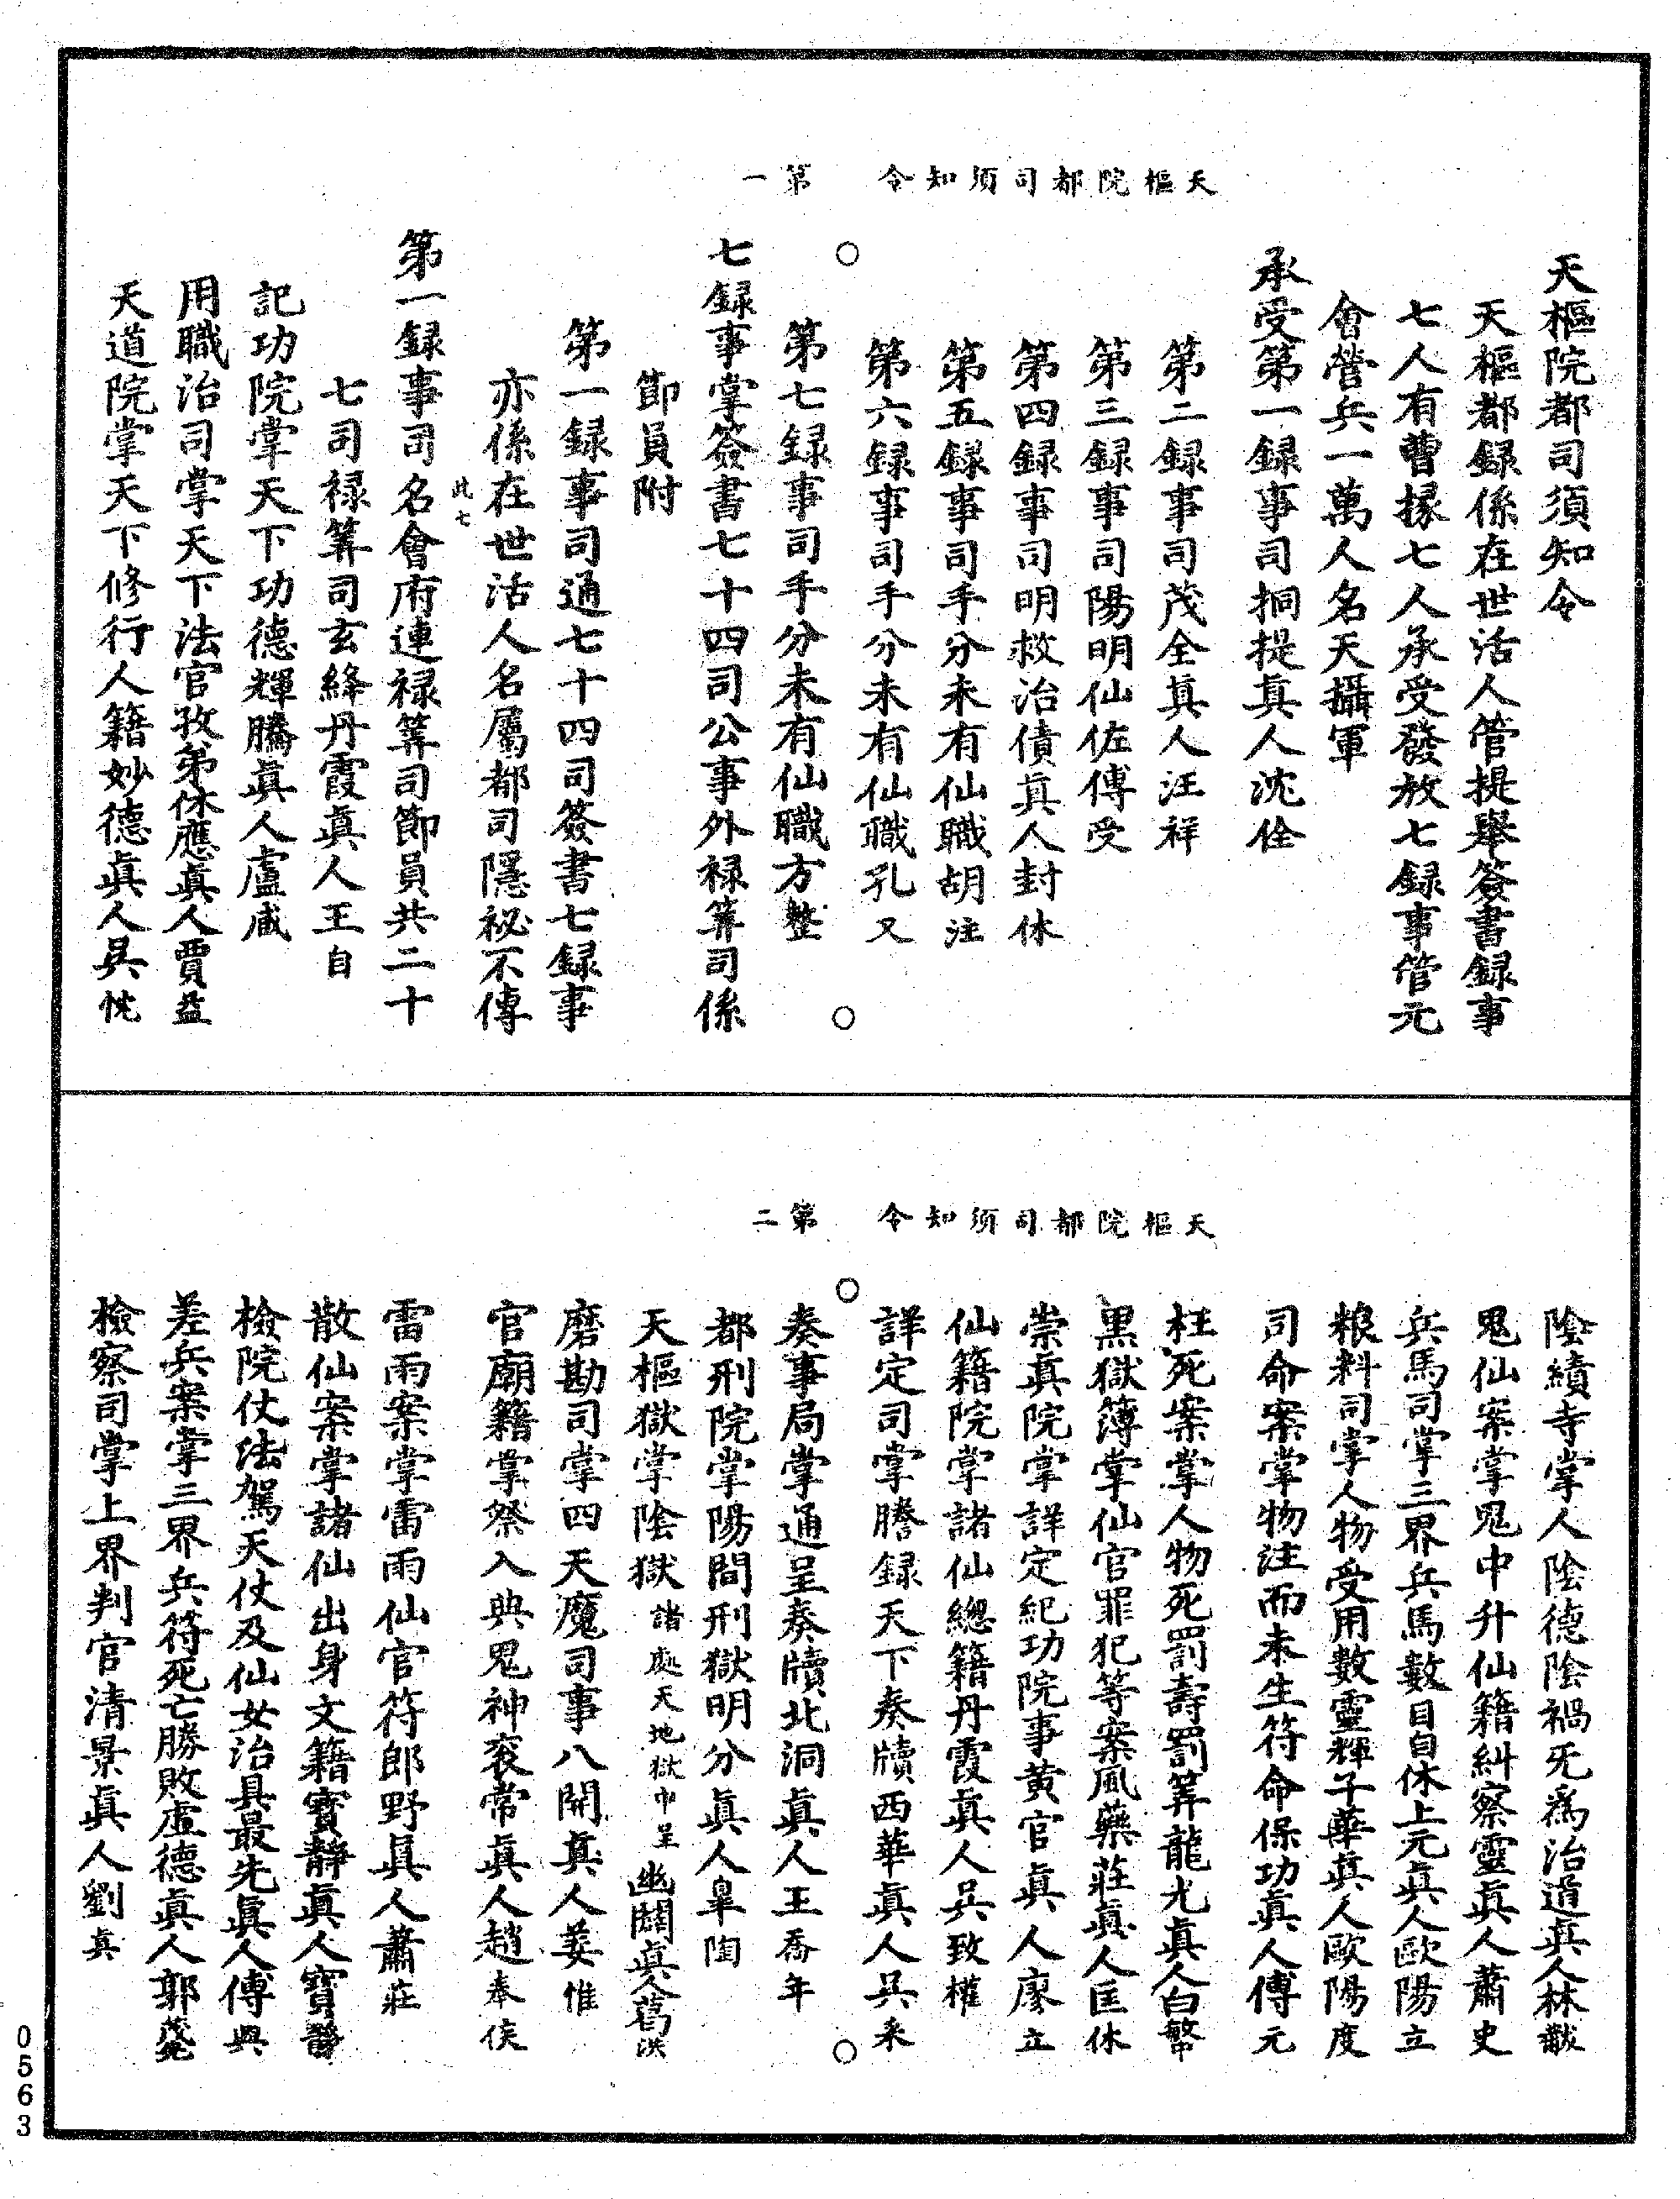 天樞院都司須知令　第一
天樞院都司須知令
天樞都録係在世活人管提舉簽書録事
七人有曹掾七人承受發放七録事管元
會營兵一萬人名天攝軍
承受第一録事司挏提眞人沈佺
第二録事司茂全眞人汪祥
第三録事司陽明仙佐傅受
第四録事司明救治債眞人封休
第五録事司手分未有仙職胡注
第六録事司手分未有仙職孔又
第七録事司手分未有仙職方整
七録事掌簽書七十四司公事外禄筭司係
節員附
第一録事司通七十四司簽書七録事
亦係在世活人名屬都司隱祕不傳
此七
第一録事司名會府連禄筭司節員共二十
七司禄筭司玄絳丹霞眞人王自
記功院掌天下功德輝騰眞人盧咸
用職治司掌天下法官孜弟休應眞人賈益
天道院掌天下修行人籍妙德眞人吳忱
天樞院都司須知令　第二
陰績寺掌人陰德陰禍旡爲治道眞人林
鬼仙案掌鬼中升仙籍糾察靈眞人蕭史
兵馬司掌三界兵馬數目自休上元眞人歐陽立
粮料司掌人物受用數靈輝子華眞人歐陽度
司命案掌物注而未生符命保功眞人傅元
枉死案掌人物死罰壽罰筭龍光眞人白
黑獄簿掌仙官罪犯等案風藥莊眞人匡休
崇眞院掌詳定紀功院事黄官眞人廖立
仙籍院掌諸仙總籍丹霞眞人吳致權
詳定司掌謄録天下奏牘西華眞人吳釆
奏事局掌通呈奏牘北洞眞人王喬年
都刑院掌陽間刑獄明分眞人臯陶
天樞獄掌陰獄諸處天地獄巾呈幽闢眞人葛洪
磨勘司掌四天魔司事八開眞人姜惟
官廟籍掌祭入典鬼神衮常眞人趙奉侯
雷雨案掌雷雨仙官符郎野眞人蕭莊
散仙案掌諸仙出身文籍寳靜眞人寳靜
檢院仗法駕天仗及仙女治具最先眞人傅與
差兵案掌三界兵符死亡勝敗虚德眞人郭
檢察司掌上界判官清景眞人劉真
0563